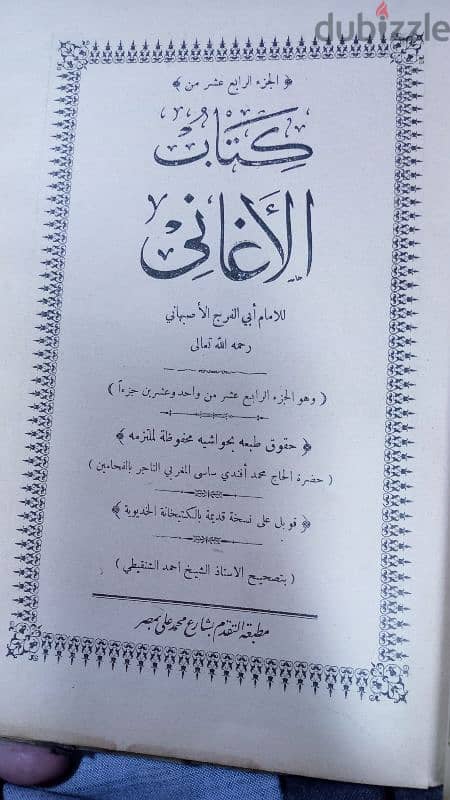 dubizzle
﴿ الجزء الرابع عشر من ﴾
كتاب
الأغاني
للامام أبي الفرج الأصبهاني
رحمه الله تعالى
( وهو الجزء الرابع عشر من واحد وعشرين جزءاً )
﴿ حقوق طبعه بحواشيه محفوظة لملتزمه ﴾
( حضرة الحاج محمد أفندي ساسى المغربي التاجر بالفحامين )
﴿ قوبل على نسخة قديمة بالكتبخانة الخديوية ﴾
( بتصحيح الاستاذ الشيخ احمد الشنقيطي )
مطبعة التقدم بشارع محمد على بمصر